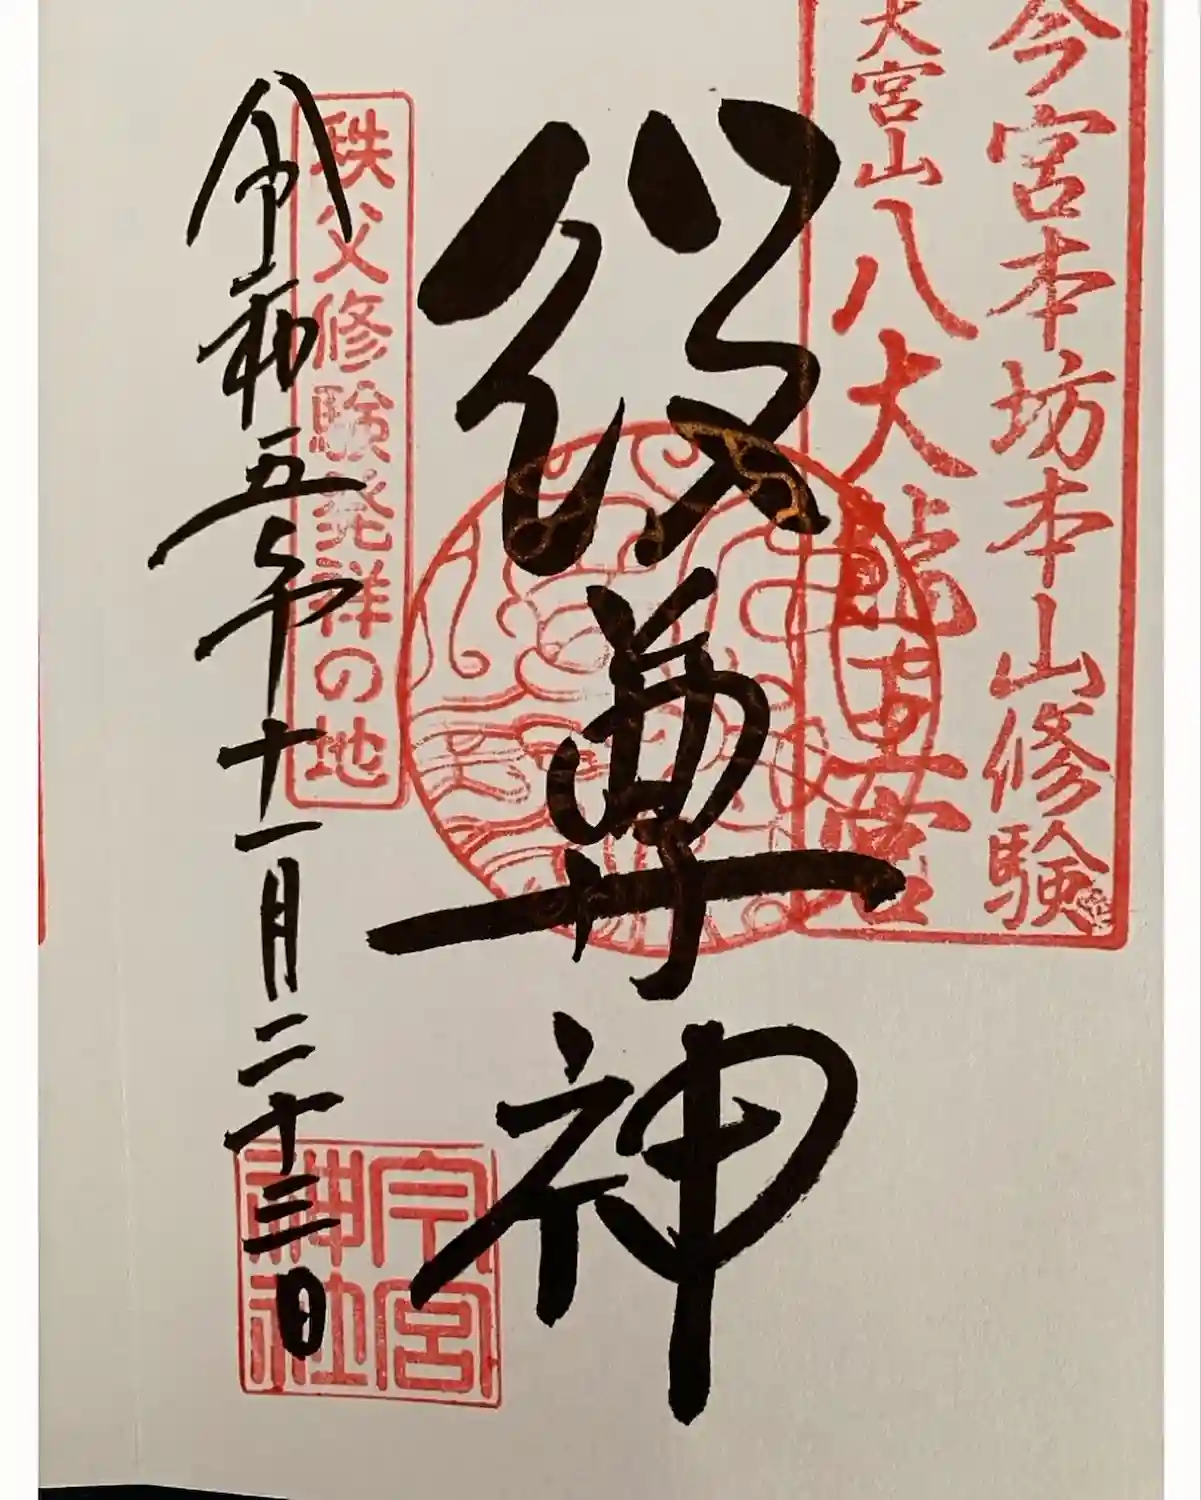 今宮本坊本山修験
大宮山八大龍王宮
役尊神
秩父修験発祥の地
令和五年十一月二十三日
今宮
神社